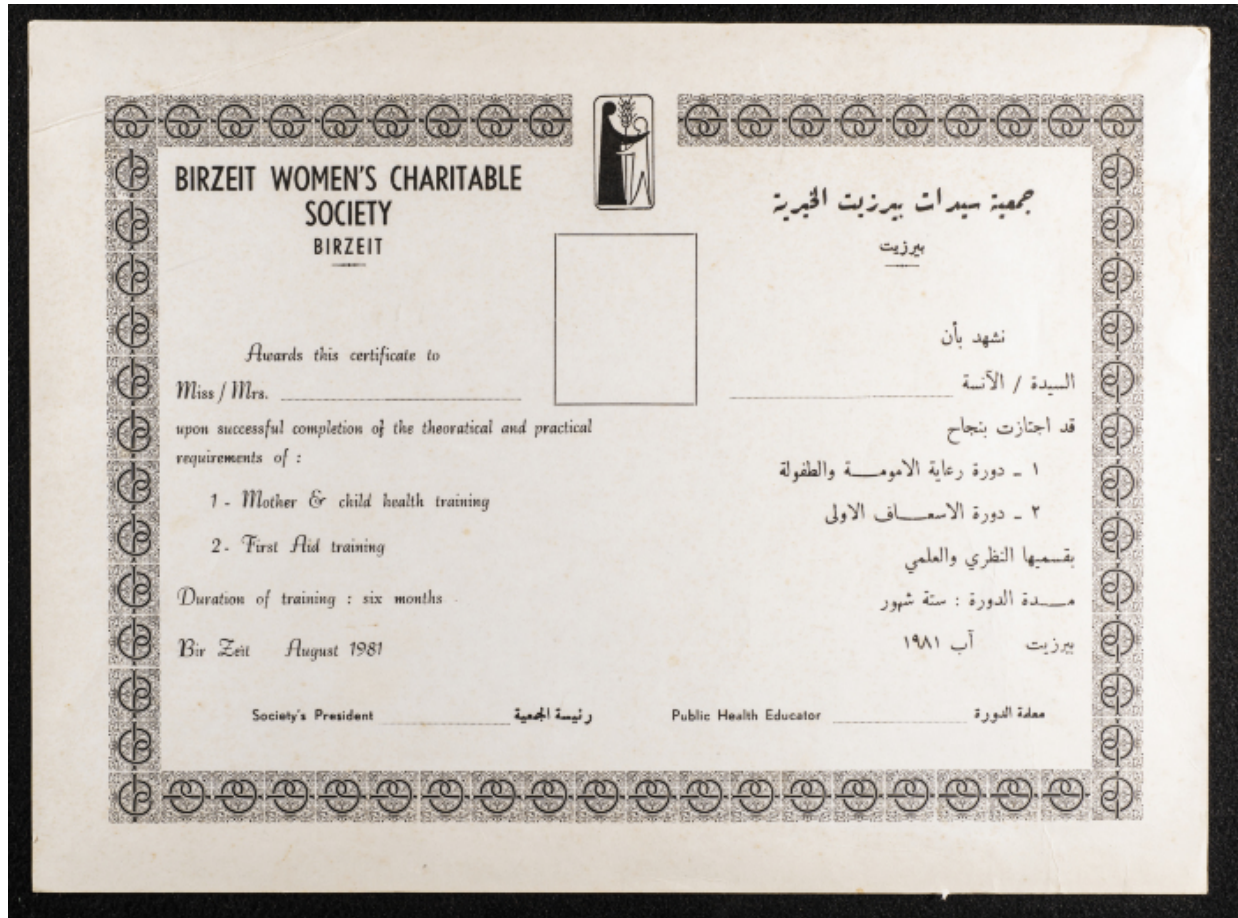 BIRZEIT WOMEN'S CHARITABLE
SOCIETY
BIRZEIT
Awards this certificate to
Miss / Mrs.
upon successful completion of the theoratical and practical
requirements of :
1 - Mother & child health training
2 - First Aid training
Duration of training : six months
Bir Zeit August 1981
جمعية سيدات بيرزيت الخيرية
بيرزيت
نشهد بأن
السيدة / الآنسة
قد اجتازت بنجاح
١ ـ دورة رعاية الامومـــة والطفولة
٢ ـ دورة الاسعـــاف الاولى
بقسميها النظري والعلمي
مـــدة الدورة : ستة شهور
بيرزيت آب ١٩٨١
Society's President رئيسة الجمعية
Public Health Educator معلمة الدورة